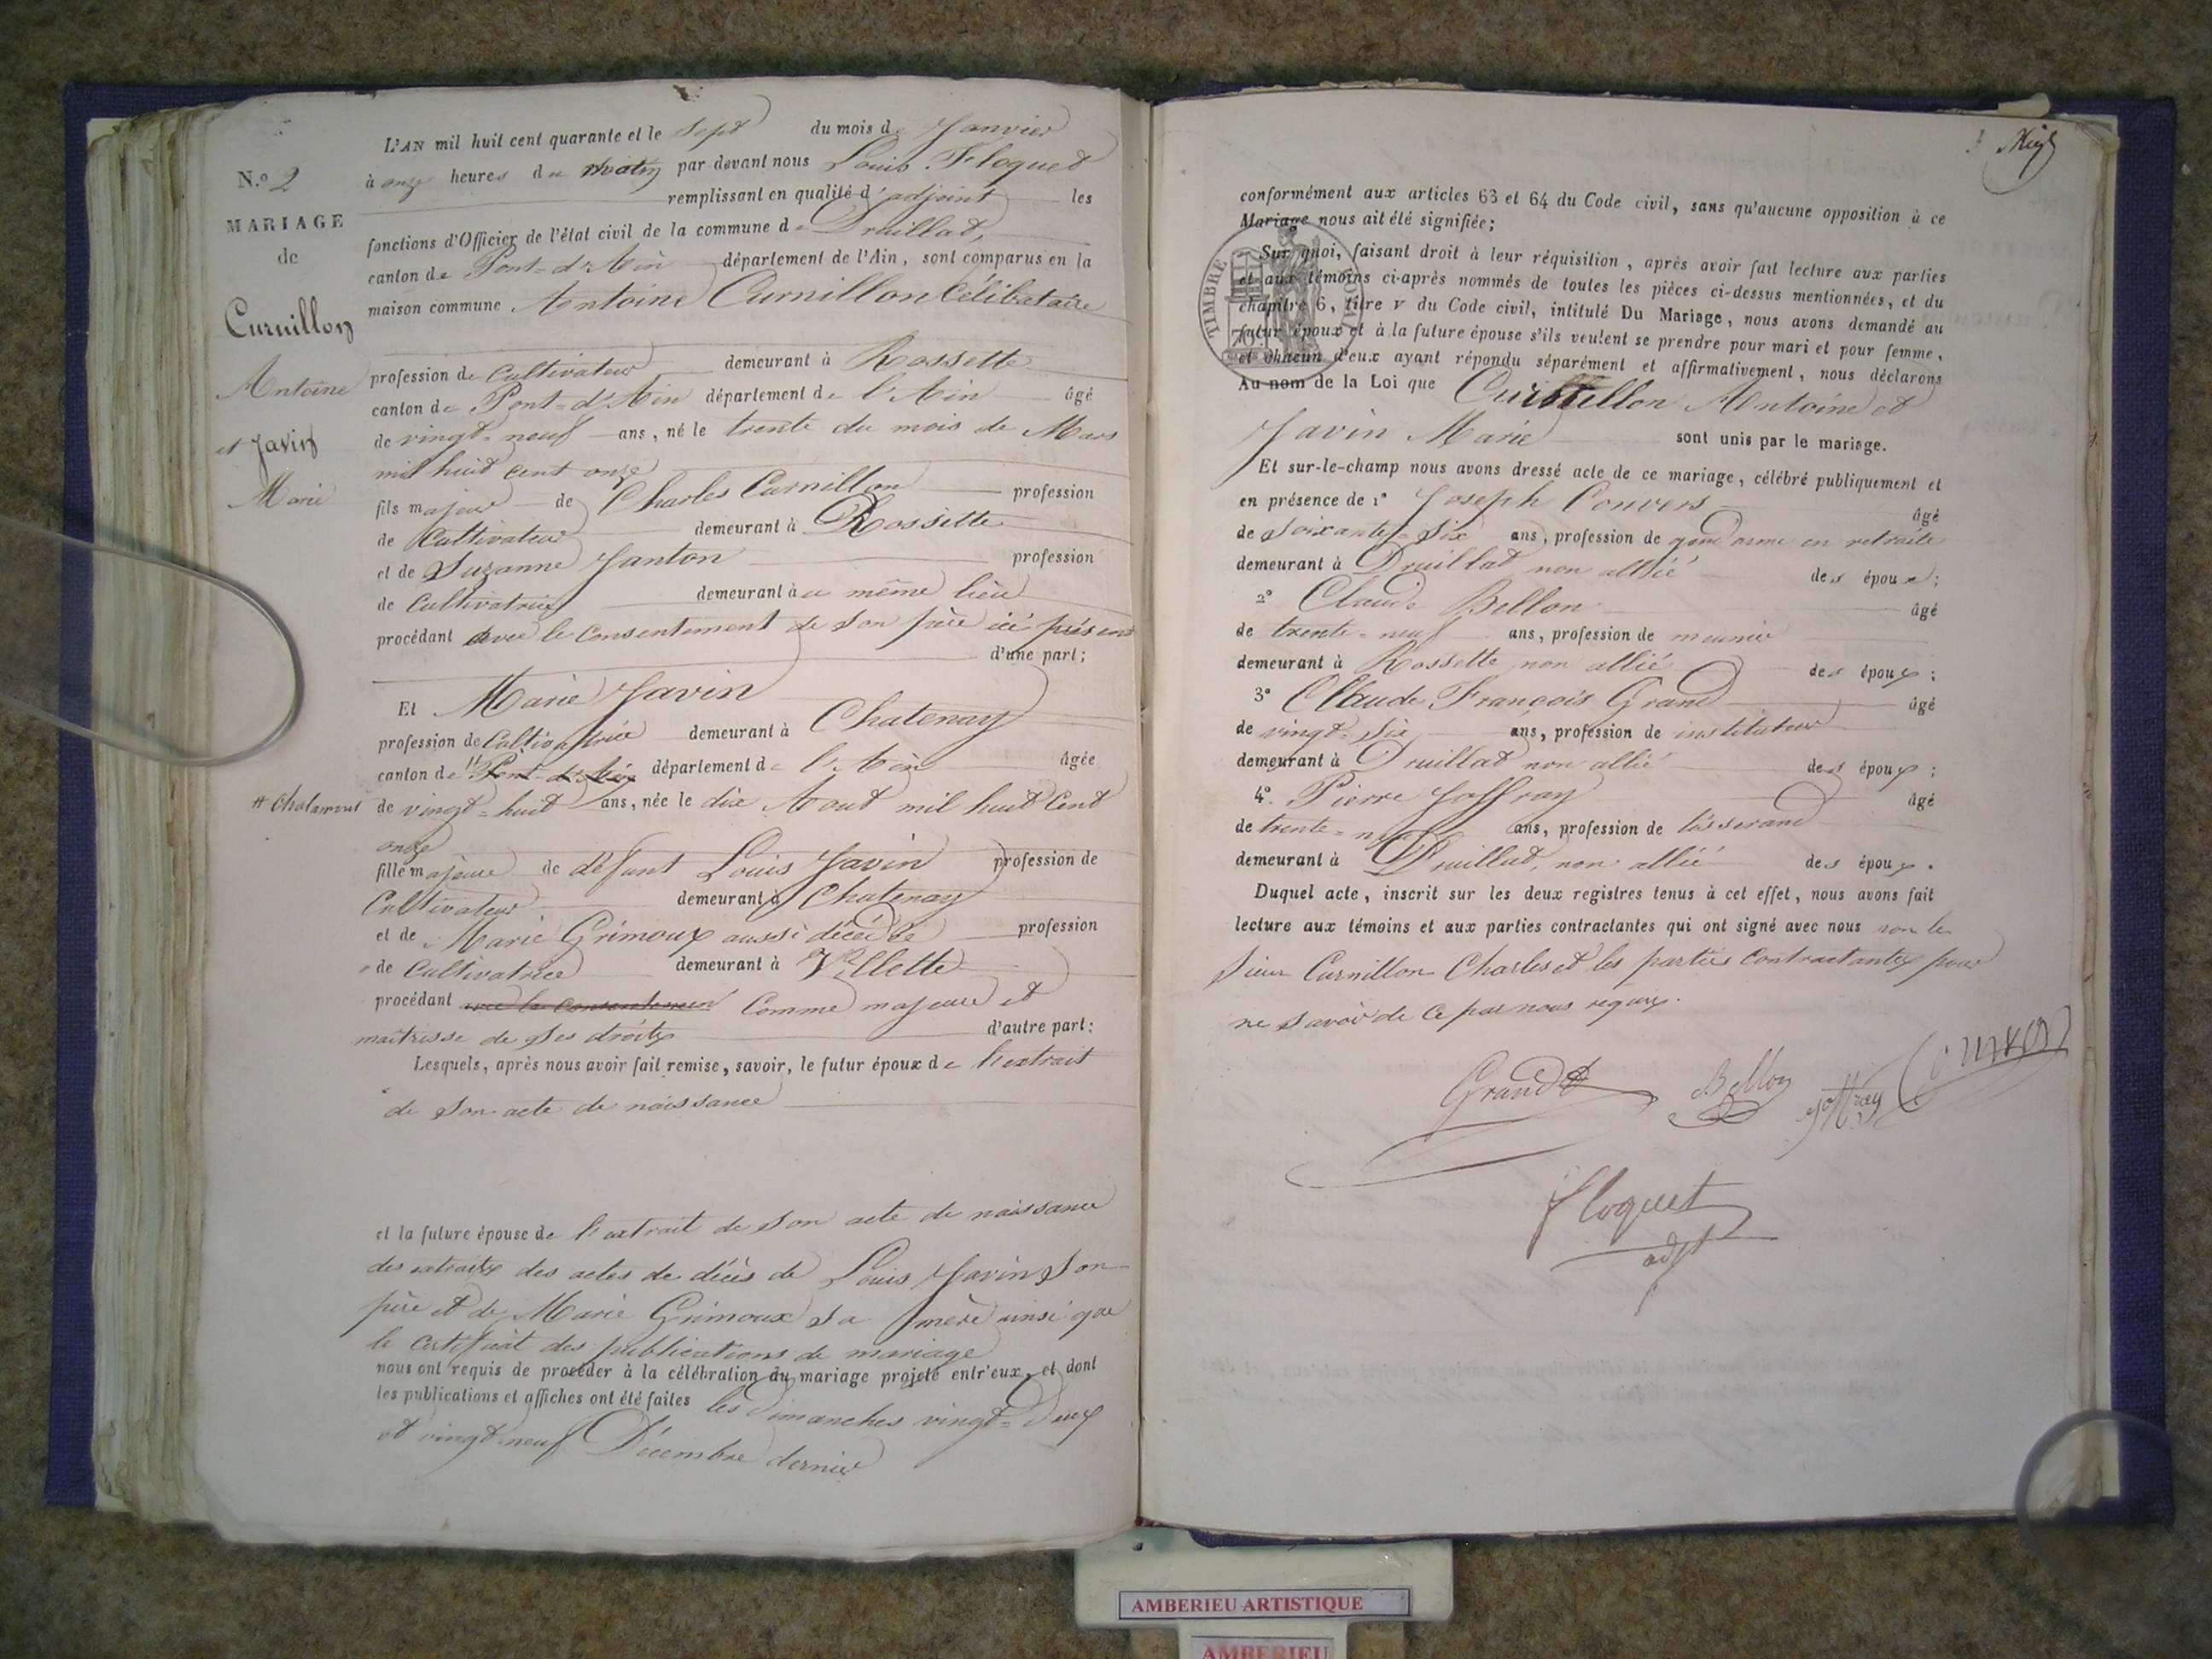 N.º 2
MARIAGE
de
Curnillon
Antoine
et Javin
Marie
L'AN mil huit cent quarante et le sept du mois de Janvier
à onze heures du matin par-devant nous Louis Floquet
remplissant en qualité d'adjoint les
fonctions d'Officier de l'état civil de la commune de Druillat,
canton de Pont-d'Ain département de l'Ain, sont comparus en la
maison commune Antoine Curnillon Célibataire
profession de Cultivateur demeurant à Rossette
canton de Pont-d'Ain département de l'Ain âgé
de vingt-neuf ans, né le trente du mois de Mars
mil huit cent onze
fils majeur de Charles Curnillon profession
de Cultivateur demeurant à Rossette
et de Suzanne Janton profession
de Cultivatrice demeurant à u même lieu
procédant avec le consentement de son père ici présent
d'une part;
Et Marie Javin
profession de Cultivatrice demeurant à Chatenay
canton de # Pont-d'Ain département de l'Ain âgée
# Chalamont
de vingt-huit ans, née le dix Aout mil huit Cent
onze
fille majeure de défunt Louis Javin profession de
Cultivateur demeurant à Chatenay
et de Marie Grimoux aussi décédée profession
de Cultivatrice demeurant à Villette
procédant avec le consentement Comme majeure et
maîtresse de ses droits d'autre part:
Lesquels, après nous avoir fait remise, savoir, le futur époux de l'extrait
de son acte de naissance
et la future épouse de l'extrait de son acte de naissance
des extraits des actes de décès de Louis Javin son
père et de Marie Grimoux sa mère ainsi que
le certificat des publications de mariage
nous ont requis de procéder à la célébration du mariage projeté entr'eux, et dont
les publications et affiches ont été faites les Dimanches vingt-deux
et vingt-neuf Décembre dernier
conformément aux articles 63 et 64 du Code civil, sans qu'aucune opposition à ce
Mariage nous ait été signifiée;
TIMBRE
Sur quoi, faisant droit à leur réquisition, après avoir fait lecture aux parties
et aux témoins ci-après nommés de toutes les pièces ci-dessus mentionnées, et du
chapitre 6, titre v du Code civil, intitulé Du Mariage, nous avons demandé au
futur époux et à la future épouse s'ils veulent se prendre pour mari et pour femme,
et chacun d'eux ayant répondu séparément et affirmativement, nous déclarons
Au nom de la Loi que Curnillon Antoine et
Javin Marie sont unis par le mariage.
Et sur-le-champ nous avons dressé acte de ce mariage, célébré publiquement et
en présence de 1º Joseph Convers âgé
de soixante-six ans, profession de gendarme en retraite
demeurant à Druillat non allié des époux;
2º Claude Bellon âgé
de trente-neuf ans, profession de meunier
demeurant à Rossette non allié des époux;
3º Claude François Grand âgé
de vingt-six ans, profession de instituteur
demeurant à Druillat non allié des époux;
4º. Pierre Joffray âgé
de trente-neuf ans, profession de tisserand
demeurant à Druillat, non allié des époux.
Duquel acte, inscrit sur les deux registres tenus à cet effet, nous avons fait
lecture aux témoins et aux parties contractantes qui ont signé avec nous non le
sieur Curnillon Charles et les parties Contractantes pour
ne savoir de ce par nous requis.
Grand
Bellon
Joffray
Convers
Floquet
adjt
AMBERIEU ARTISTIQUE
AMBERIEU